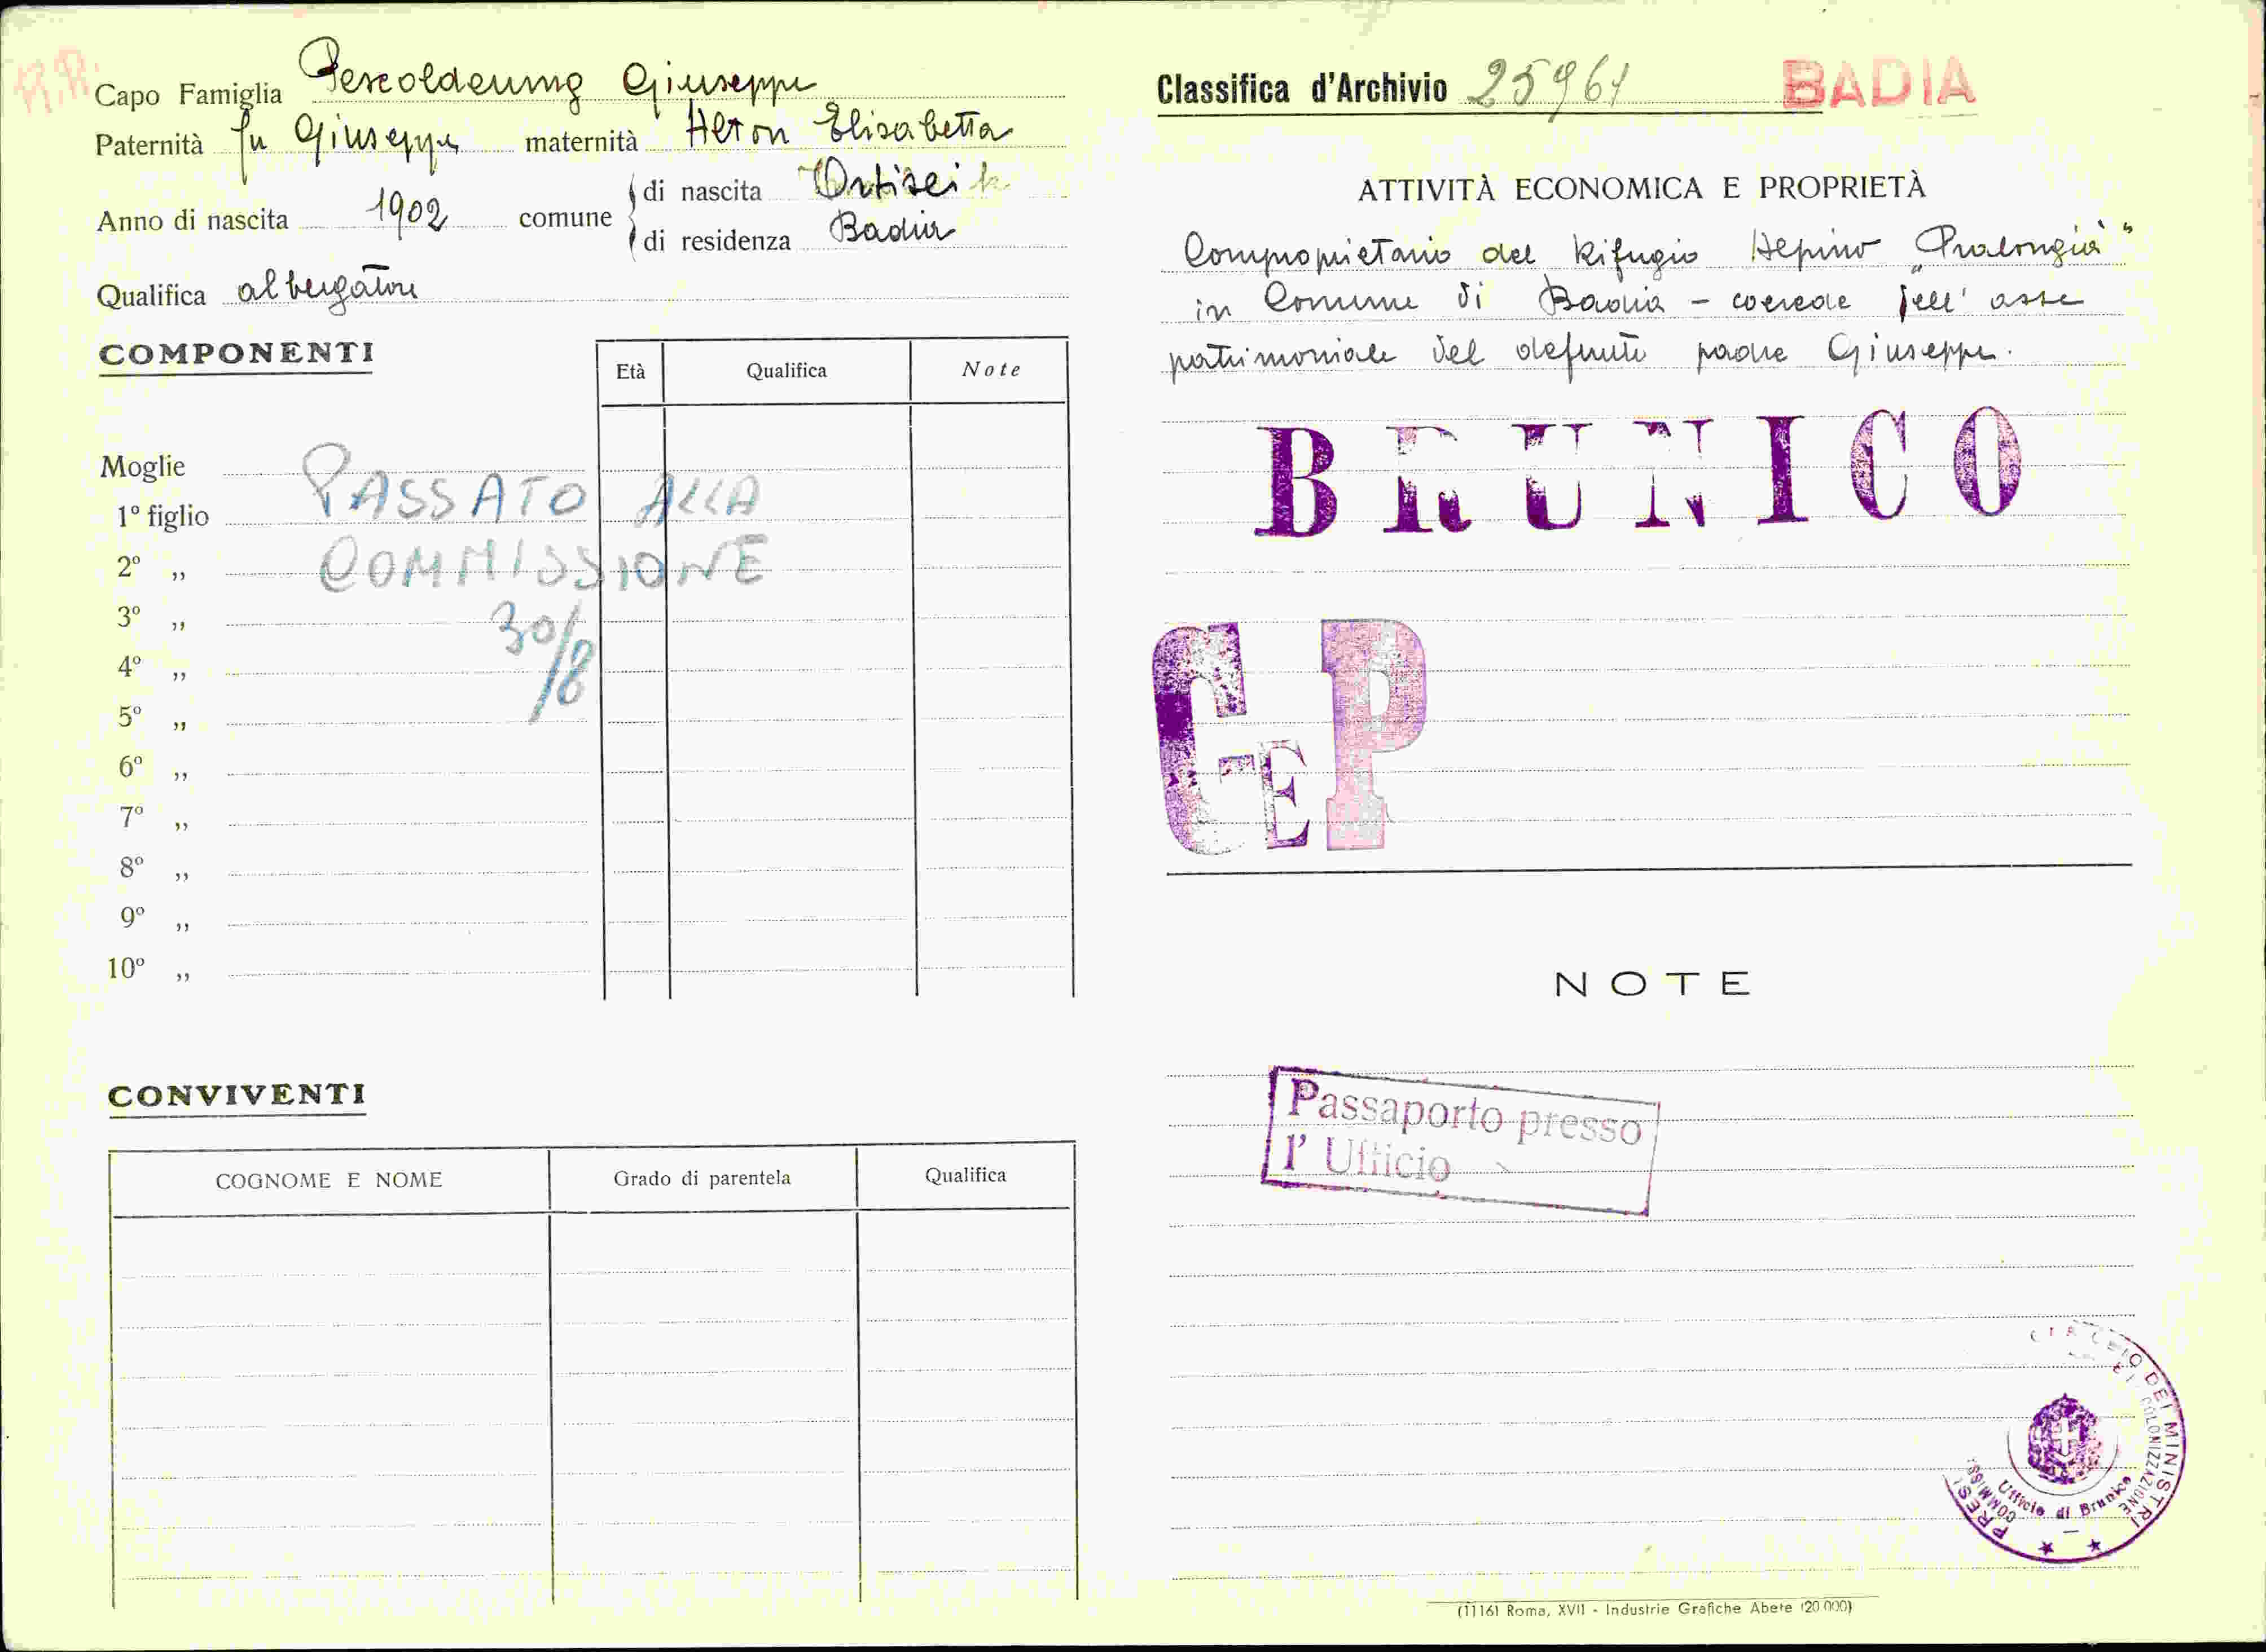 R.R.
Capo Famiglia Pescolderung Giuseppe
Paternità fu Giuseppe maternità Alton Elisabetta
Anno di nascita 1902 comune di nascita Ortisei
di residenza Badia
Qualifica albergatore
COMPONENTI
Età Qualifica Note
Moglie
1º figlio
2º „
3º „
4º „
5º „
6º „
7º „
8º „
9º „
10º „
PASSATO ALLA
COMMISSIONE
30/8
CONVIVENTI
COGNOME E NOME Grado di parentela Qualifica
Classifica d'Archivio 25961 BADIA
ATTIVITÀ ECONOMICA E PROPRIETÀ
Comproprietario del Rifugio Alpino „Pralongià"
in Comune di Badia - coerede dell'asse
patrimoniale del defunto padre Giuseppe.
BRUNICO
GEP
NOTE
Passaporto presso
l'Ufficio
DEI MINISTRI
COLONIZZAZIONE
Ufficio di Brunico
COMMISS.
PRESI
(11161 Roma, XVII - Industrie Grafiche Abete (20.000)